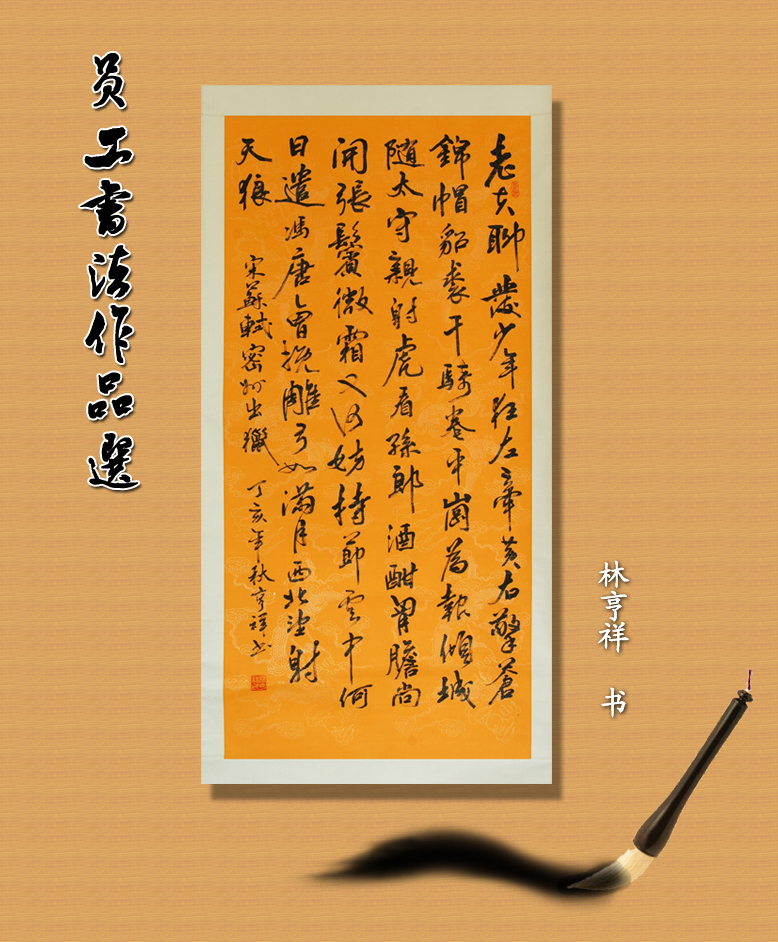 员工书法作品選
老夫聊發少年狂左牽黄右擎蒼
錦帽貂裘千騎卷平崗為報傾城
随太守親射虎看孫郎酒酣胷膽尚
開張鬢微霜又何妨持節雲中何
日遣馮唐會挽雕弓如滿月西北望射
天狼
宋蘇軾密州出獵
丁亥年秋亨祥书
林亨祥 书